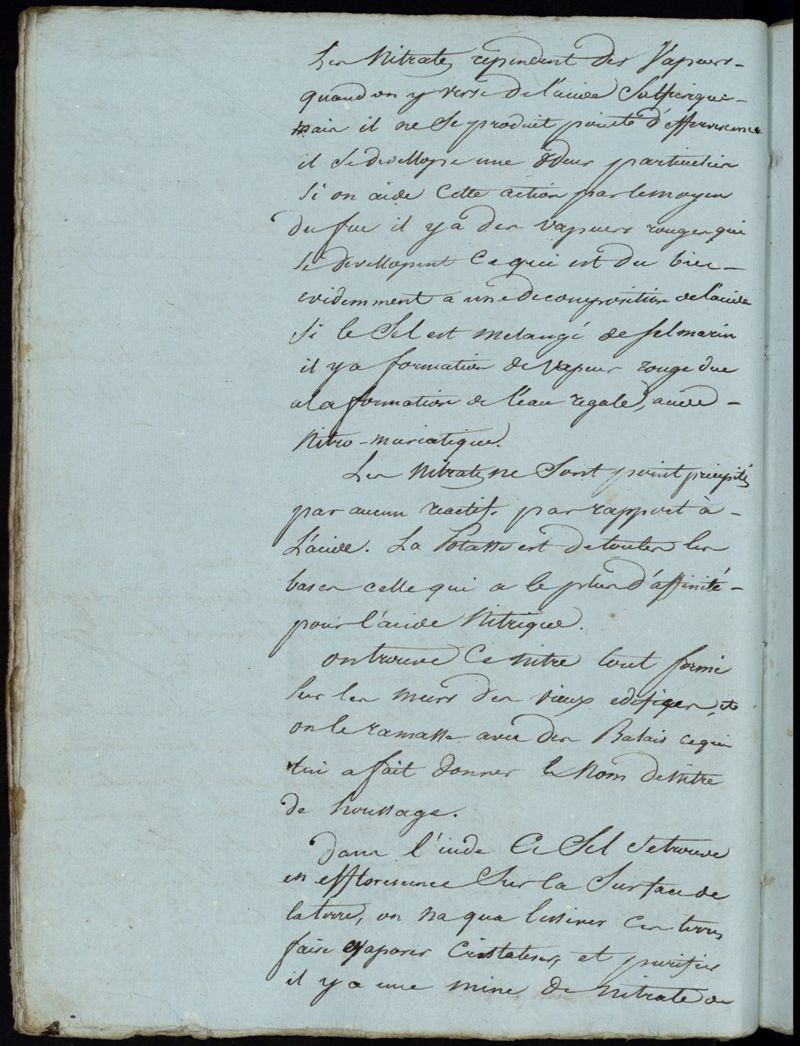 Les Nitrates rependent des Vapeurs -
quand on y verse de l'acide Sulfurique -
mais il ne se produit point d'effervescence
il se devellope une Odeur particuliere
si on aide cette action par le moyen
du feu il y a des vapeurs rouges qui
se devellopent ce qui est du bien -
evidemment a une decomposition de l'acide
si le Sel est melangé de sel marin
il y a formation de vapeur rouge due
a la formation de l'eau regale, acide -
Nitro-muriatique.
Les Nitrates ne sont point précipités
par aucun reactif. par rapport à -
L'acide. La Potasse est de toutes les
bases celle qui a le plus d'affinité -
pour l'acide Nitrique.
on trouve ce nitre tout formé
sur les murs des vieux edifices, et
on le ramasse avec des Balais ce qui
lui a fait donner le Nom de Nitre
de houssage.
Dans l'inde ce Sel se trouve
en efflorescence sur la surface de
la terre, on n'a qu'a lessiver ces terres
faire evaporer cristaliser, et purifier
il y a une mine de nitrate de